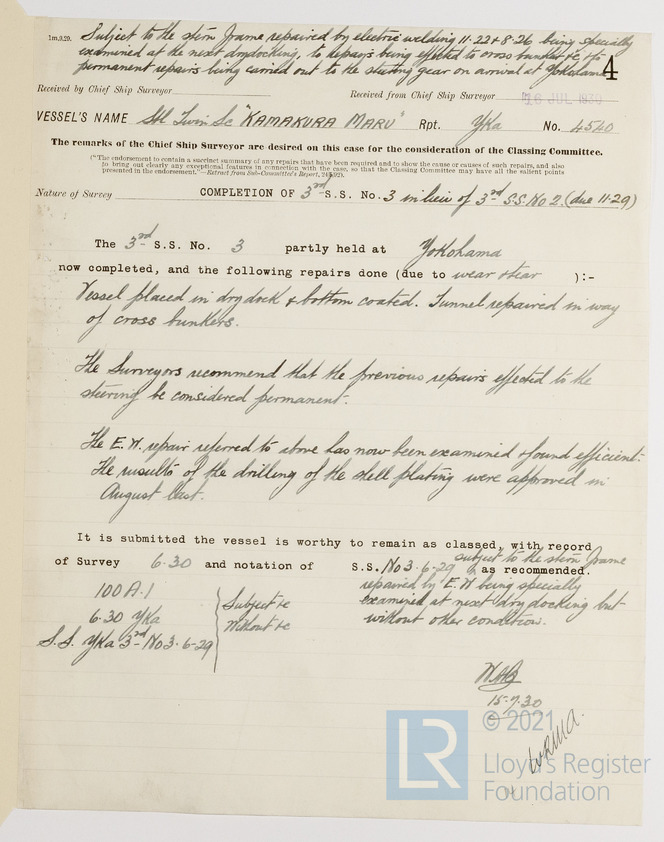 1m,9,29.
Subject to the stern frame repaired by electric welding 11.22 & 8.26 being specially
examined at the next drydocking, to repairs being effected to cross bunker &c, & to
permanent repairs being carried out to the steering gear on arrival at Yokohama
4
Received by Chief Ship Surveyor
Received from Chief Ship Surveyor 16 JUL 1930
VESSEL'S NAME Stl Twin Sc "KAMAKURA MARU" Rpt. YKa No. 4540
The remarks of the Chief Ship Surveyor are desired on this case for the consideration of the Classing Committee.
("The endorsement to contain a succinct summary of any repairs that have been required and to show the cause or causes of such repairs, and also
to bring out clearly any exceptional features in connection with the case, so that the Classing Committee may have all the salient points
presented in the endorsement."—Extract from Sub-Committee's Report,
Nature of Survey COMPLETION OF 3rd S.S. No. 3 in lieu of 3rd S.S. No 2. (due 11-29)
The 3rd S.S. No. 3 partly held at Yokohama
now completed, and the following repairs done (due to wear & tear ):-
Vessel placed in dry dock & bottom coated. Tunnel repaired in way
of cross bunkers.
The Surveyors recommend that the previous repairs effected to the
steering be considered permanent.
The E.W. repair referred to above has now been examined & found efficient.
The results of the drilling of the shell plating were approved in
August last.
It is submitted the vessel is worthy to remain as classed, with record
of Survey 6.30 and notation of S.S. No 3-6-29 subject to the stern frame
as recommended.
repaired by E.W being specially
examined at next dry docking but
without other condition.
100A.1
6.30 YKa
S.S. YKa 3rd No 3-6-29
Subject &c
Without &c
15.7.30
© 2021
LR
Lloyd's Register
Foundation